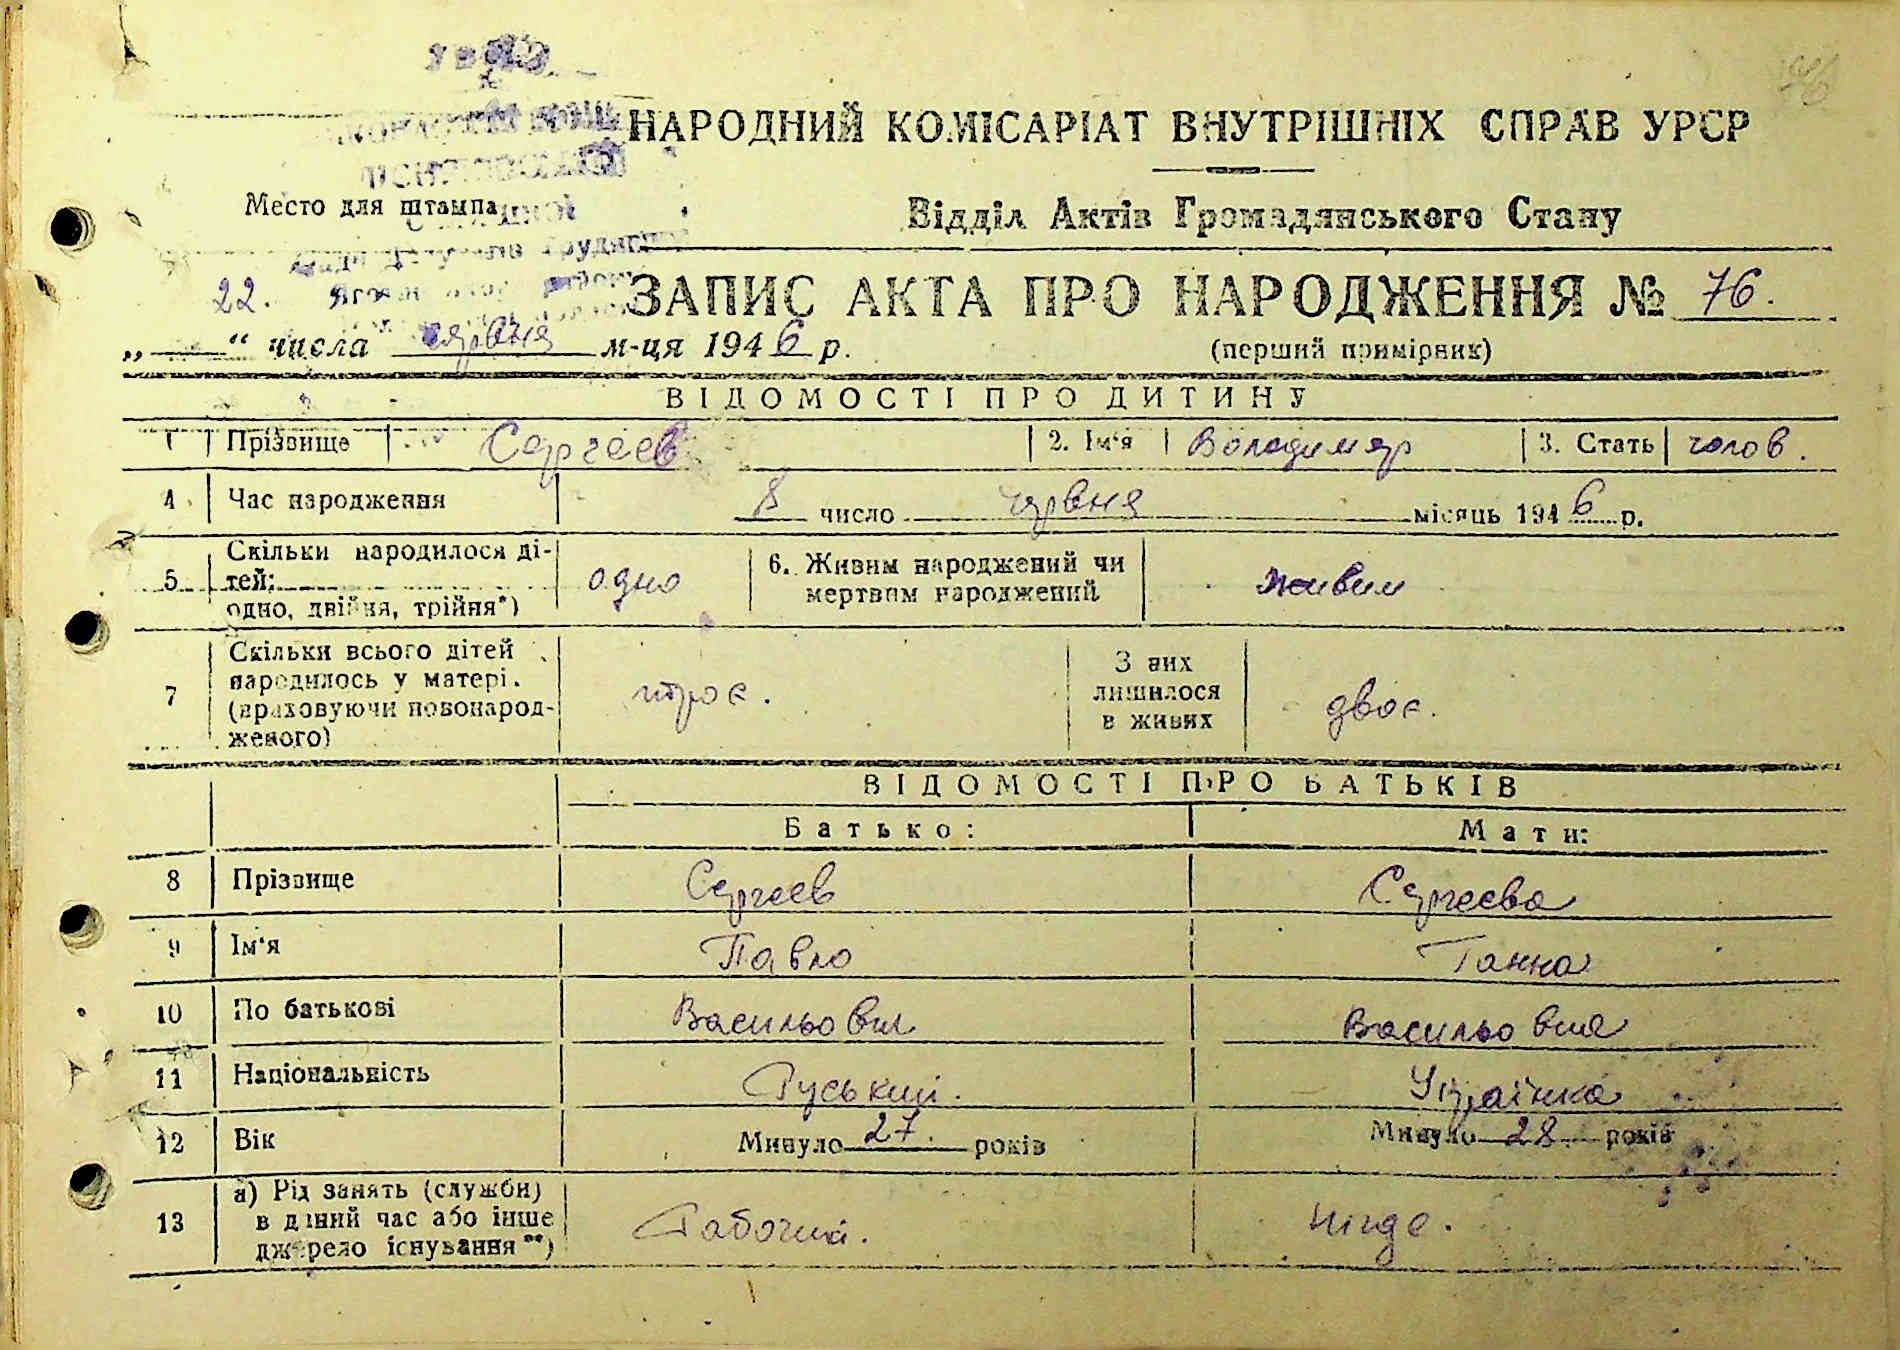 76
НАРОДНИЙ КОМІСАРІАТ ВНУТРІШНІХ СПРАВ УРСР
Место для штампа
Відділ Актів Громадянського Стану
ЗАПИС АКТА ПРО НАРОДЖЕННЯ № 76.
22.
„ “ числа червня м-ця 1946 р.
(перший примірник)
ВІДОМОСТІ ПРО ДИТИНУ
1 Прізвище Сергеев 2. Ім'я Володимер 3. Стать чолов.
4 Час народження 8 число червня місяць 1946 р.
5 Скільки народилося ді-
тей:
одно, двійня, трійня*) одно 6. Живим народжений чи
мертвим народжений живим
7 Скільки всього дітей
народилось у матері.
(враховуючи новонарод-
женого) троє. З них
лишилося
в живих двоє.
ВІДОМОСТІ ПРО БАТЬКІВ
Батько: Мати:
8 Прізвище Сергеев Сергеева
9 Ім'я Павло Ганна
10 По батькові Васильович Васильовна
11 Національність Руський. Українка
12 Вік Минуло 27. років Минуло 28 років
13 а) Рід занять (служби)
в даний час або інше
джерело існування**) Рабочий. нігде.